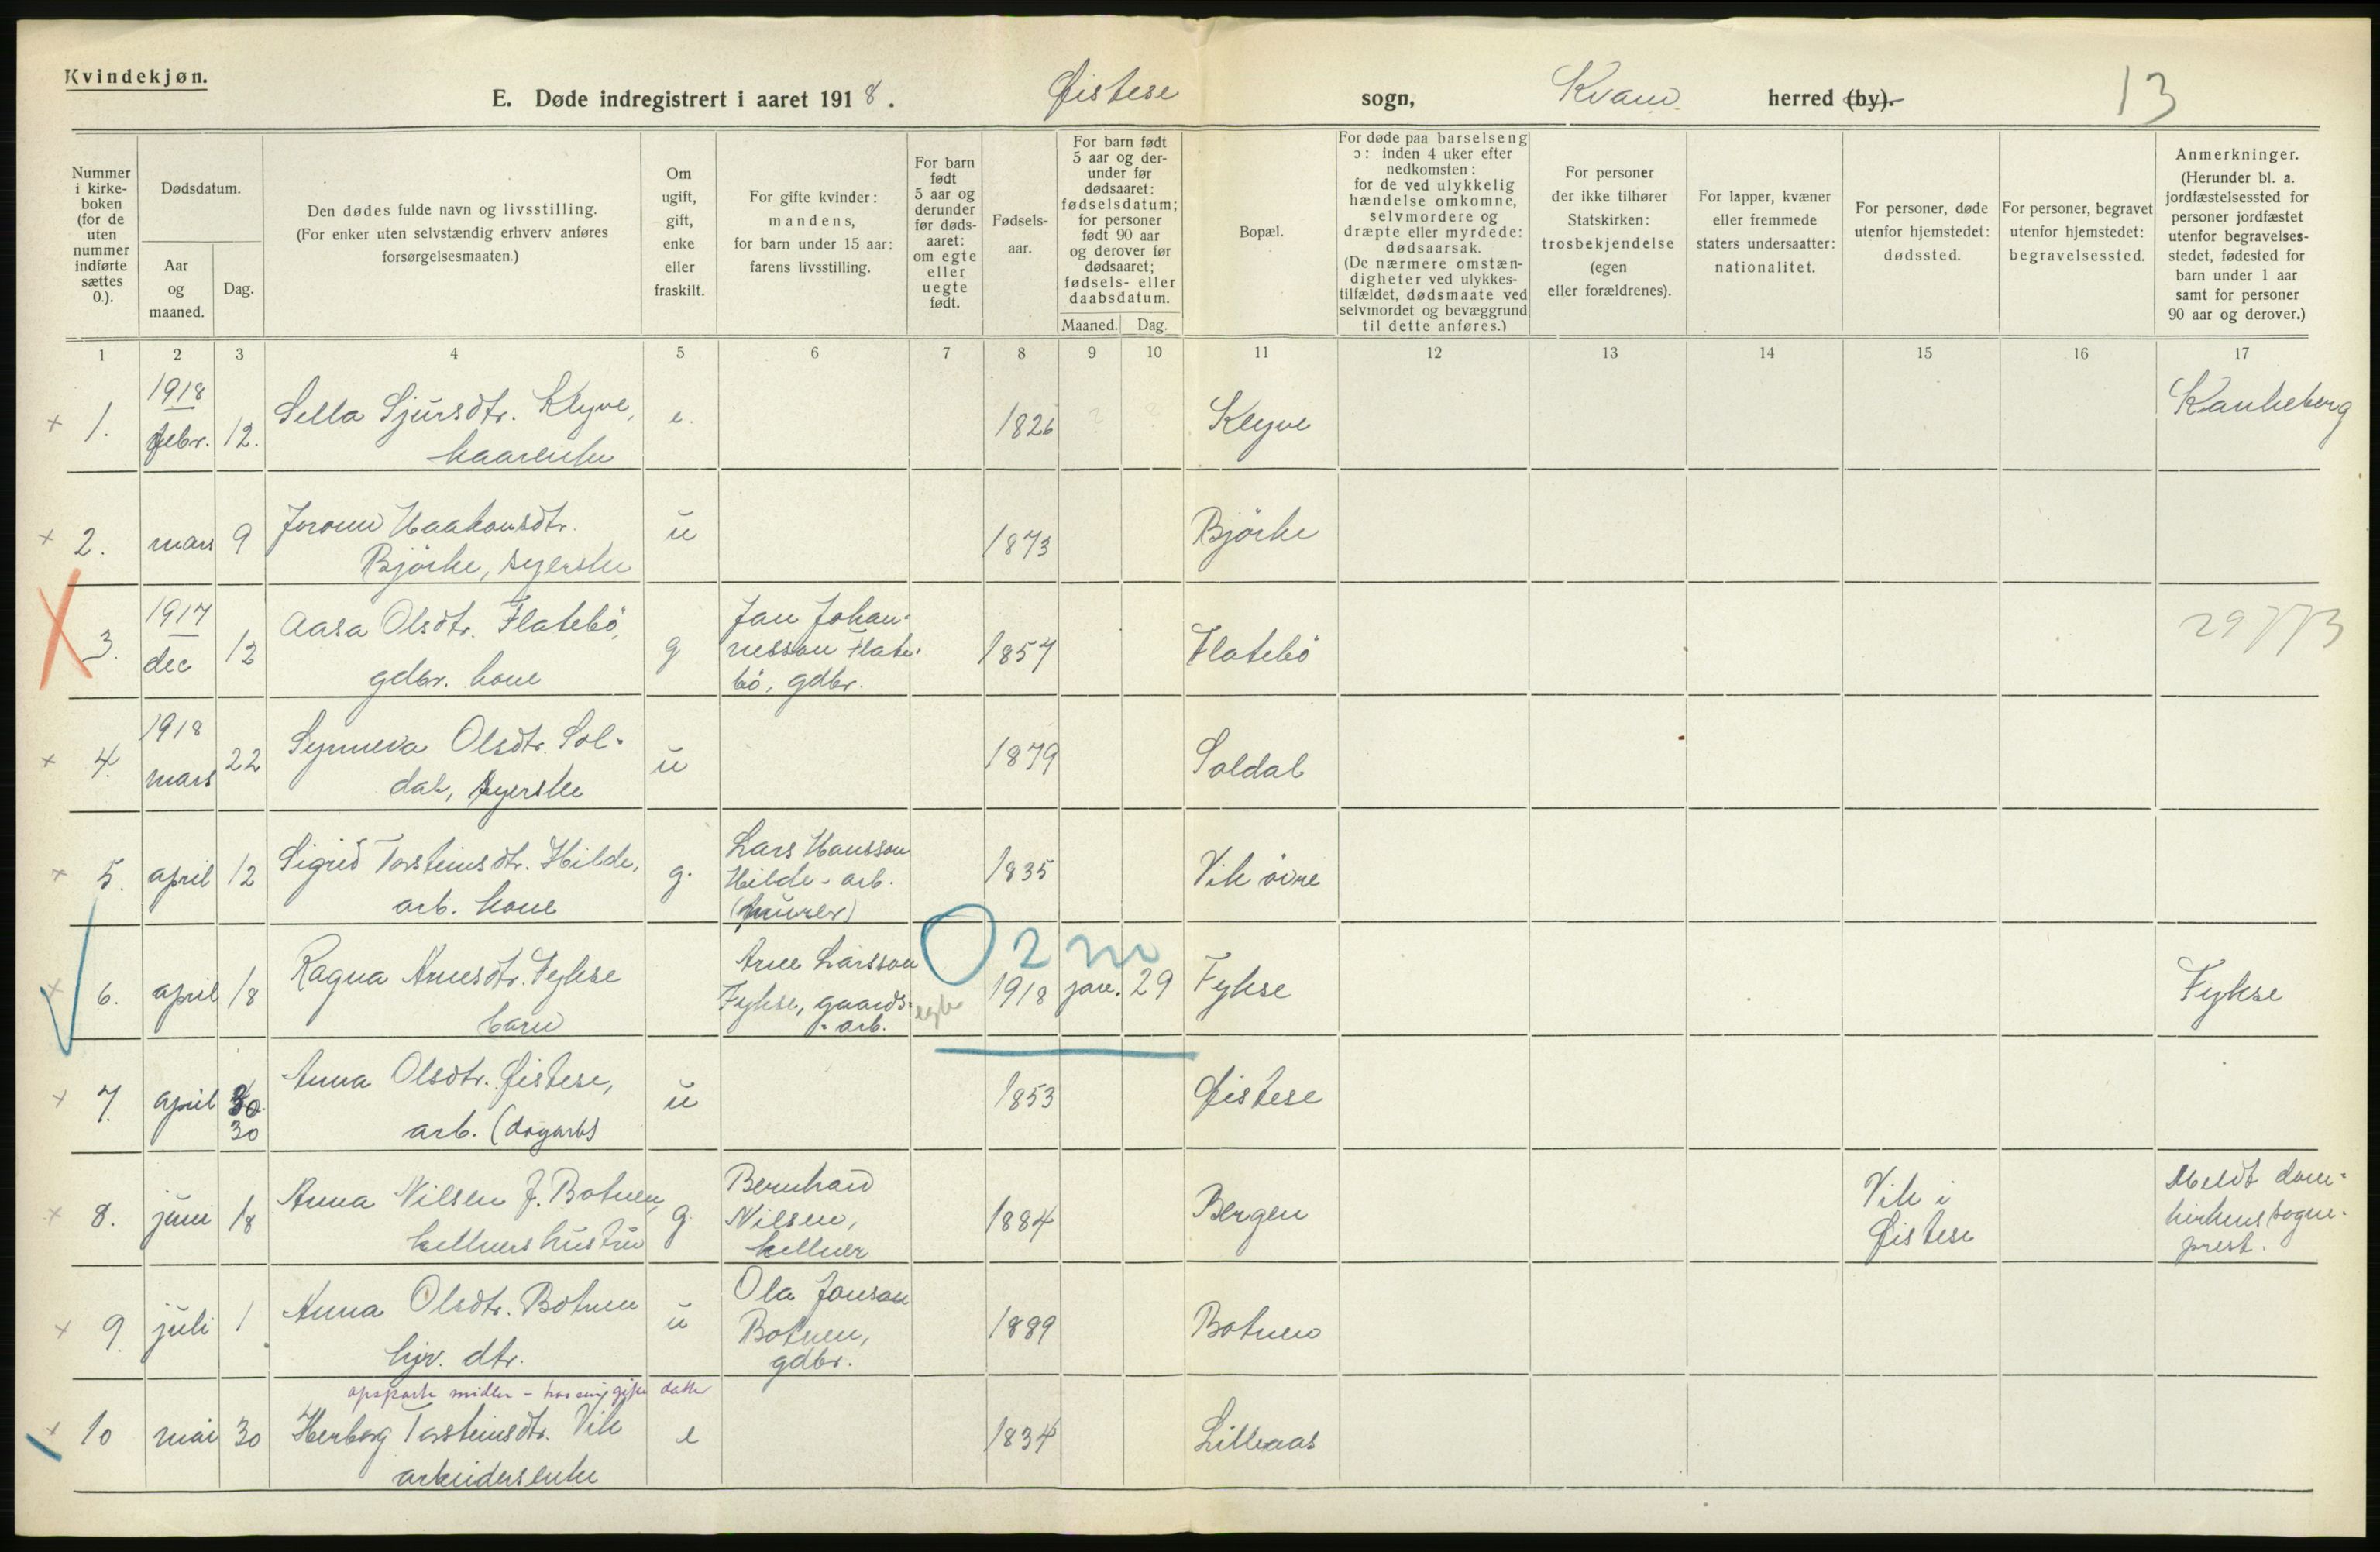 Kvindekjøn.
E. Døde indregistrert i aaret 1918.
Øistese sogn,
Kvam herred (by).
13
Nummer i kirkeboken (for de uten nummer indførte sættes 0.).
Dødsdatum.
Aar og maaned.
Dag.
Den dødes fulde navn og livsstilling.
(For enker uten selvstændig erhverv anføres
forsørgelsesmaaten.)
Om ugift, gift, enke eller fraskilt.
For gifte kvinder: mandens, for barn under 15 aar: farens livsstilling.
For barn født 5 aar og derunder før dødsaaret: om egte eller uegte født.
Fødselsaar.
For barn født 5 aar og derunder før dødsaaret: fødselsdatum; for personer født 90 aar og derover før dødsaaret; fødsels- eller daabsdatum.
Maaned.
Dag.
Bopæl.
For døde paa barselseng ɔ: inden 4 uker efter nedkomsten: for de ved ulykkelig hændelse omkomne, selvmordere og dræpte eller myrdede: dødsaarsak. (De nærmere omstændigheter ved ulykkestilfældet, dødsmaate ved selvmordet og bevæggrund til dette anføres.)
For personer der ikke tilhører Statskirken: trosbekjendelse (egen eller forældrenes).
For lapper, kvæner eller fremmede staters undersaatter: nationalitet.
For personer, døde utenfor hjemstedet: dødssted.
For personer, begravet utenfor hjemstedet: begravelsessted.
Anmerkninger. (Herunder bl. a. jordfæstelsessted for personer jordfæstet utenfor begravelsesstedet, fødested for barn under 1 aar samt for personer 90 aar og derover.)
1 2 3 4 5 6 7 8 9 10 11 12 13 14 15 16 17
1918
+ 1. febr. 12. Sella Sjursdtr. Klyve, e. 1826 Klyve
kaarenke
+ 2. mars 9 Joronn Haakonsdtr. u 1873 Bjørke
Bjørke, syerske
1917
X 3. dec 12 Aasa Olsdtr. Flatebö, g Jan Johan- 1857 Flatebö
gdbr. kone nesson Flate-
bö, gdbr.
1918
+ 4. mars 22 Synneva Olsdtr. Sol- u 1879 Soldal
dal, syerske
+ 5. april 12 Sigrid Torsteinsdtr. Hilde, g. Lars Hansson 1835 Vik øvre
arb. kone Hilde - arb.
(murer)
O 2 m
+ 6. april 18 Ragna Arnesdtr. Fykse Arne Larsson egte 1918 jan. 29 Fykse Fykse
barn Fykse, gaards-
arb.
+ 7. april 30 Anna Olsdtr. Øistese, u 1853 Øistese
30 arb. (dagarb)
+ 8. juni 18 Anna Nilsen f. Botnen, g. Bernhard 1884 Bergen Vik i Meldt dom-
kellners hustru Nilsen, Øistese kirkens sogne-
kellner prest.
+ 9. juli 1 Anna Olsdtr. Botnen u Ola Jonson 1889 Botnen
hjv. dtr. Botnen,
gdbr.
opsparte midler - hos sin gifte datter
+ 10 mai 30 Herborg Torsteinsdtr. Vik e 1834 Lilleaas
arbeidersenke